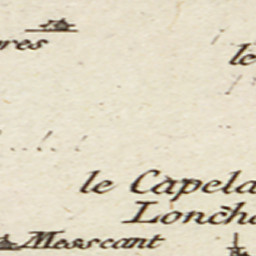 res
le
le Capela
Lonche
Messcant